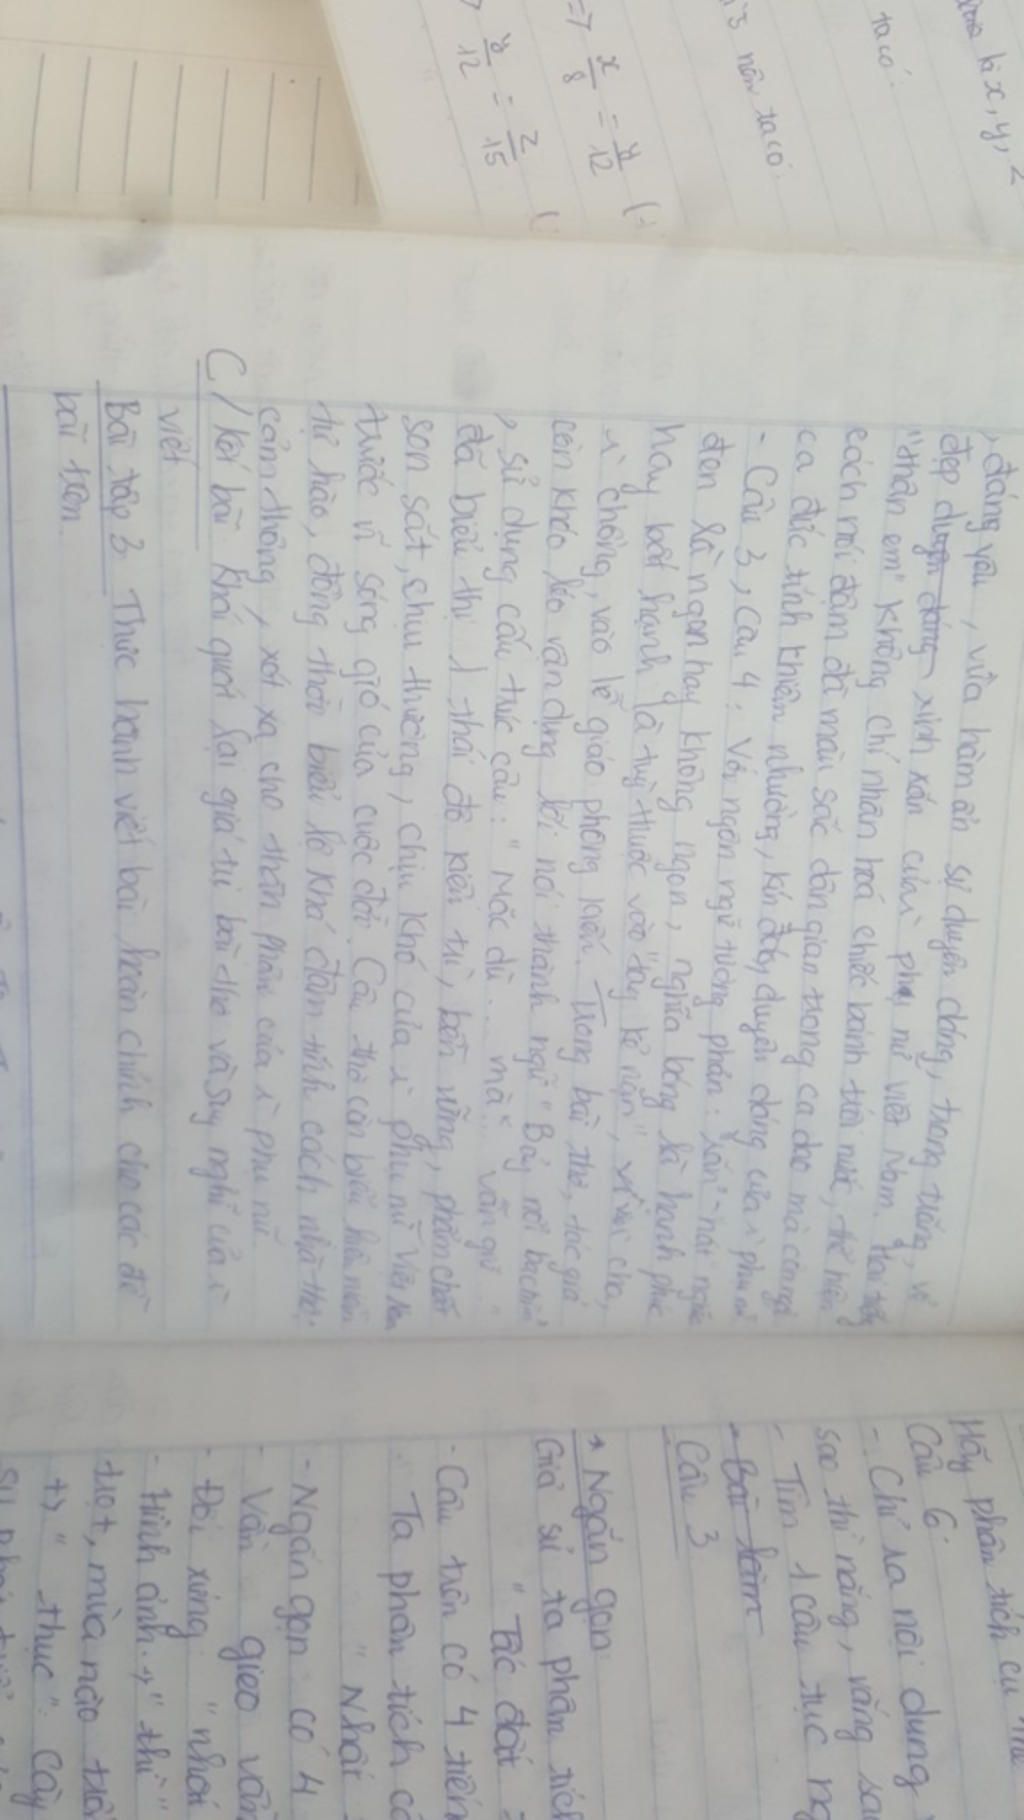 là x, y, z
ta có:
3 nên ta có:
=> x/8 = y/12
y/12 = z/15
, đáng yêu, vừa hàm ẩn sự duyên dáng, trong trắng, vẻ
đẹp duyên dáng xinh xắn của phụ nữ Việt Nam. Hai tiếng
"thân em" không chỉ nhân hoá chiếc bánh trôi nước, thể hiện
cách nói đậm đà màu sắc dân gian trong ca dao mà còn ngợi
ca đức tính khiêm nhường, kín đáo, duyên dáng của phụ nữ
- Câu 3, câu 4: Với ngôn ngữ tương phản: "rắn - nát" nghĩa
đen là ngon hay không ngon, nghĩa bóng là hạnh phúc
hay bất hạnh là tuỳ thuộc vào "tay kẻ nặn", vào cha,
vì chồng, vào lễ giáo phong kiến. Trong bài thơ, tác giả
còn khéo léo vận dụng lối nói thành ngữ "Bảy nổi ba chìm"
, sử dụng cấu trúc câu: "Mặc dù... mà... vẫn giữ..."
đã biểu thị 1 thái độ kiên trì, bền vững, phẩm chất
son sắt, chịu thương, chịu khó của phụ nữ Việt Nam
trước vì sóng gió của cuộc đời. Câu thơ còn biểu hiện niềm
tự hào, đồng thời biểu lộ khá đậm tính cách nhà thơ:
cảm thông, xót xa cho thân phận của phụ nữ.
C/ Kết bài: Khái quát lại giá trị bài thơ và suy nghĩ của
viết
Bài tập 3: Thực hành viết bài hoàn chỉnh cho các đề
bài trên
Hãy phân tích cụ thể
Câu 6:
- Chỉ ra nội dung
sao thì nắng, vắng sao
- Tìm 1 câu tục ng
- Bài làm
Câu 3
* Ngắn gọn:
Giả sử ta phân tích
"Tấc đất =
- Câu trên có 4 tiếng
Ta phân tích cá
"Nhất
- Ngắn gọn: có 4
- Vần gieo vần
- Đối xứng "nhất
- Hình ảnh -> "thì"
trọt, mùa nào trồ
"thục": Cày